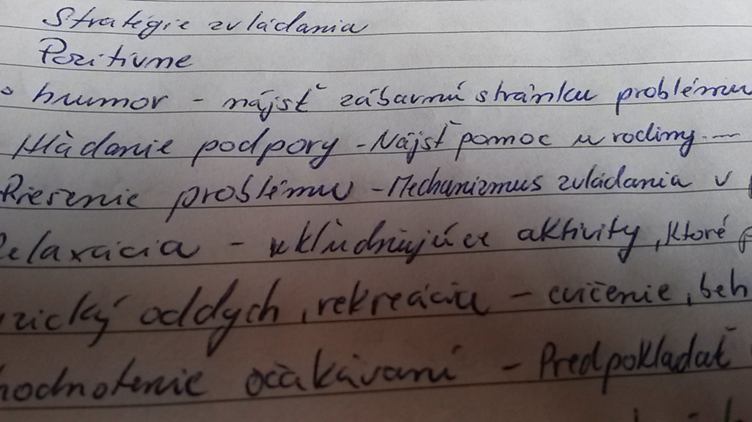 Stratégie zvládania
Pozitívne
humor - nájsť zábavnú stránku problému
Hľadanie podpory - Nájsť pomoc u rodiny...
Riešenie problému - Mechanizmus zvládania v
Relaxácia - ukľudňujúce aktivity, ktoré
oddych, rekreáciu - cvičenie, beh
hodnotenie očakávaní - Predpokladať